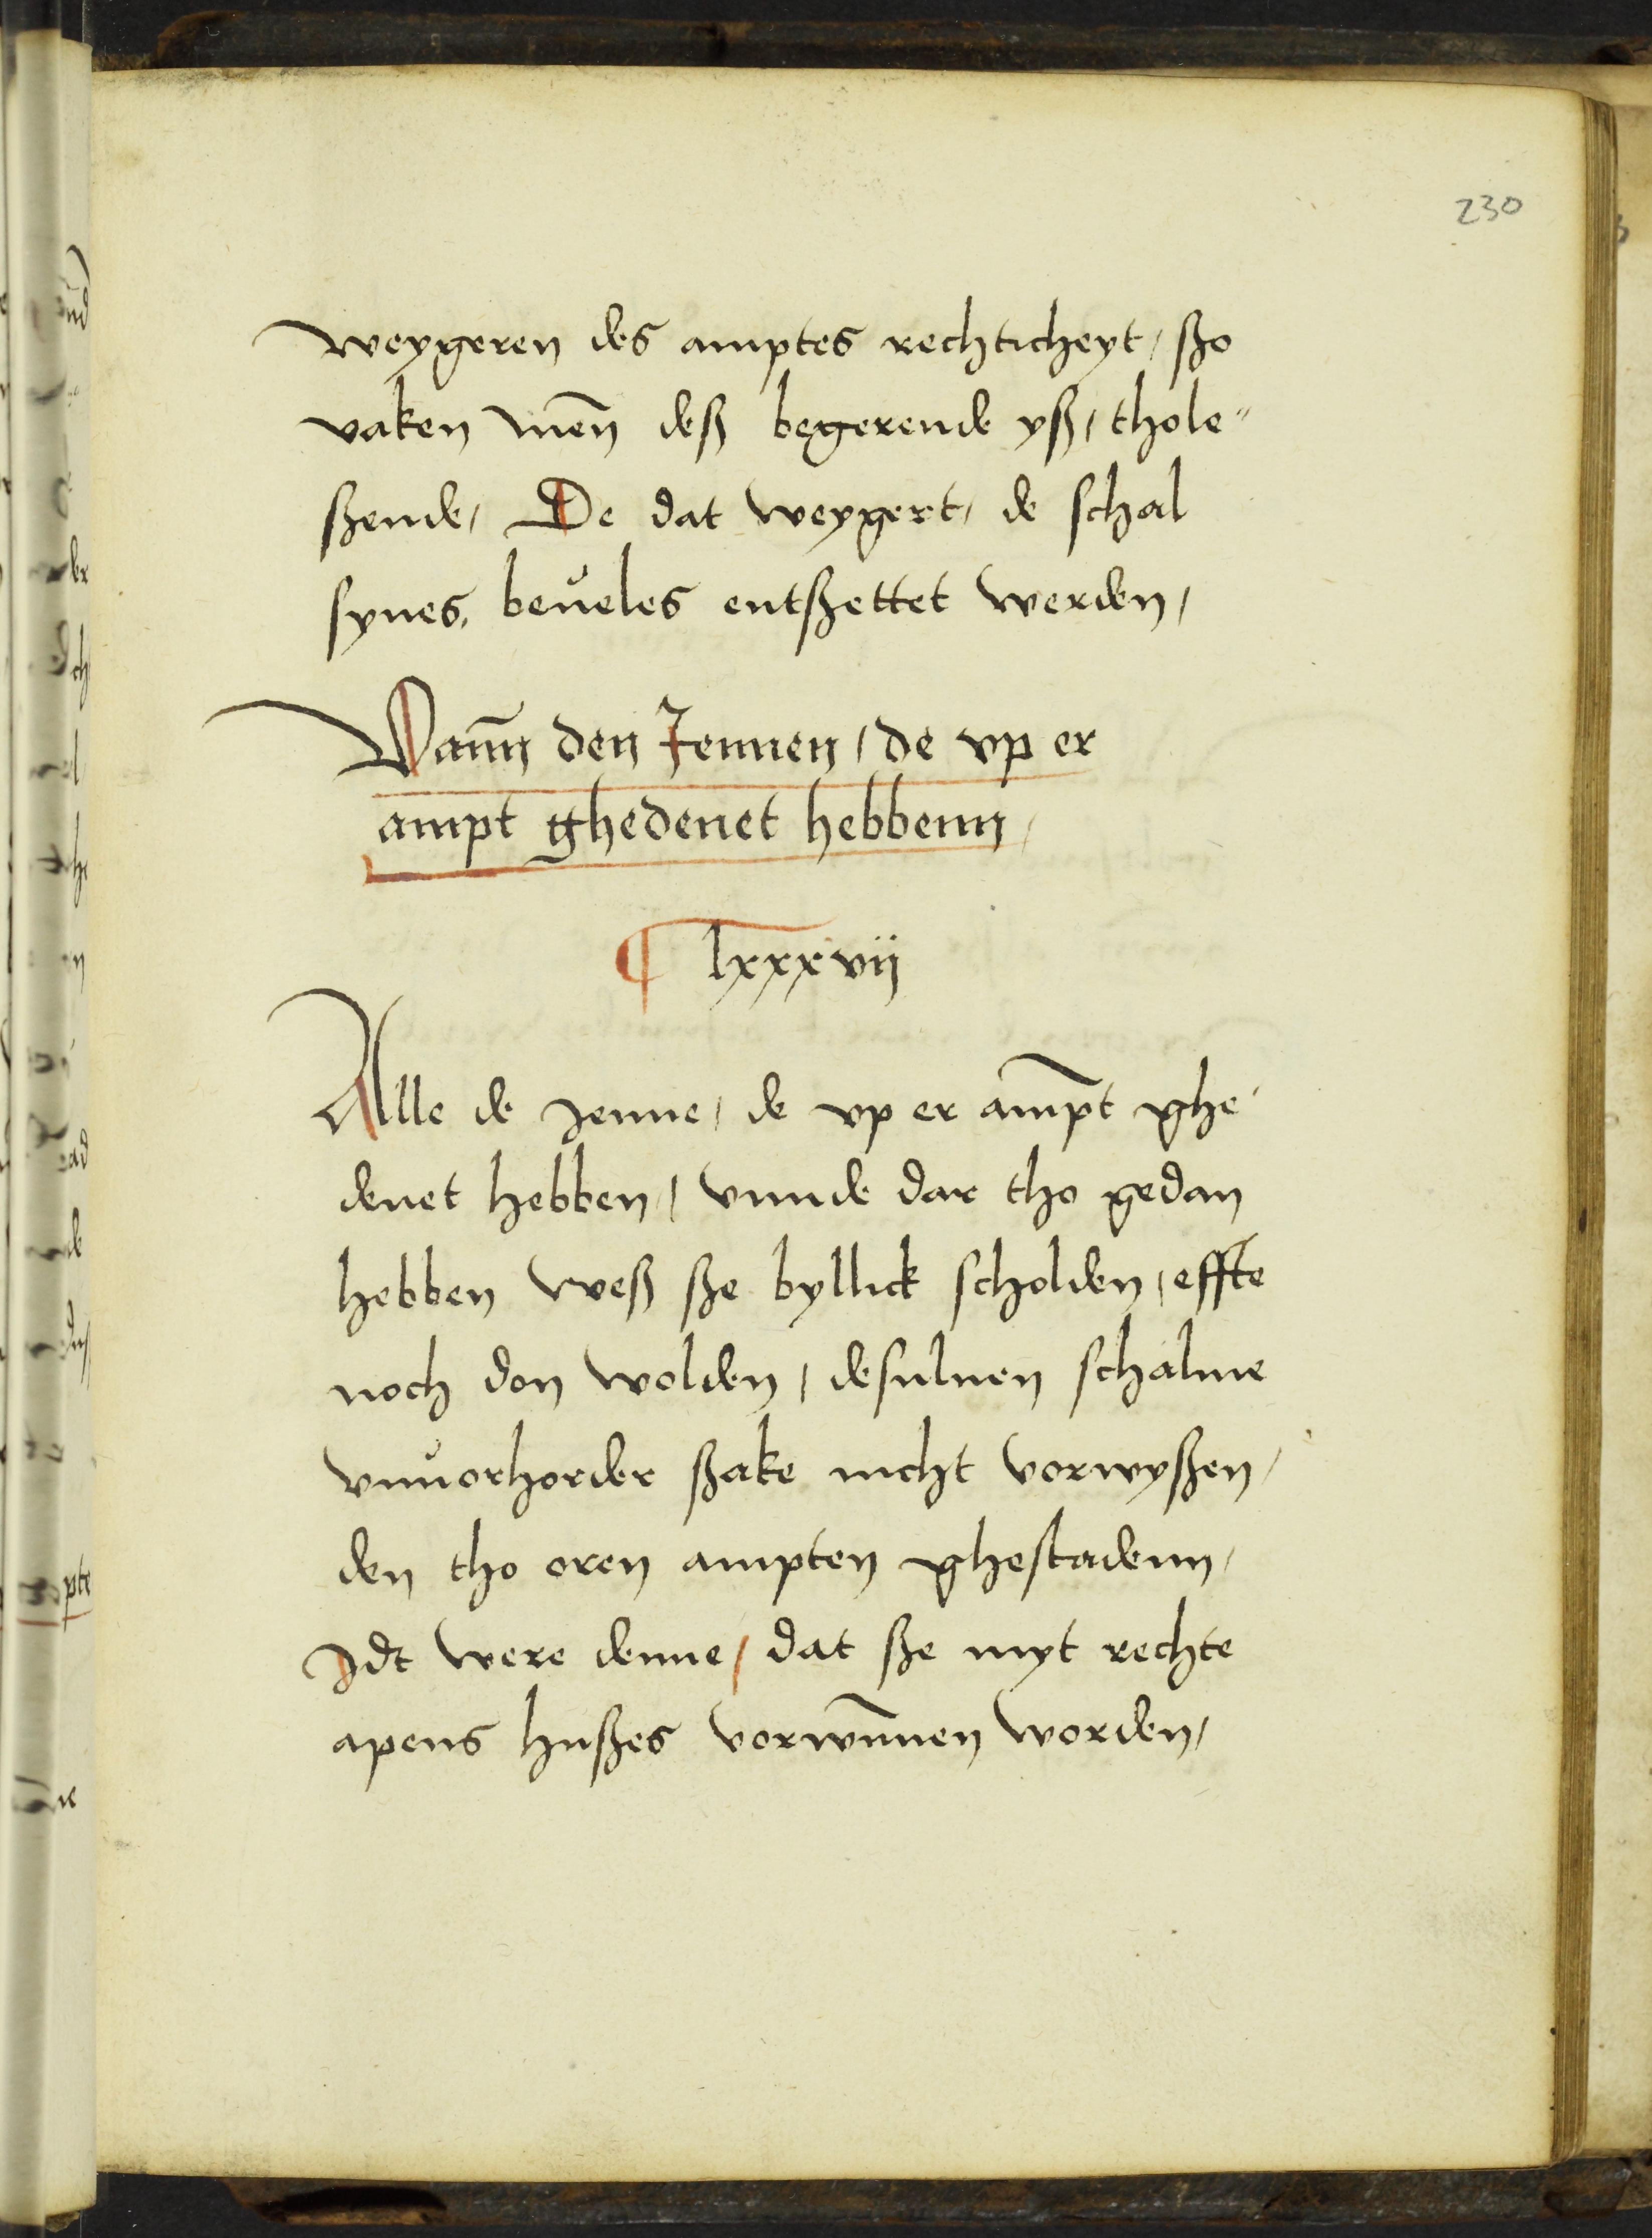 230
weygeren des amptes rechticheyt / ßo
vaken men̄ deß begerende yß / thole"
ßende / De dat weygert / de schal
synes. beuͦeles entßettet werden /
Vann̄ den Jennen / de vp er
ampt ghedenet hebbenn /
¶ lxxxvij
Alle de Jenne / de vp er am̄pt ghe-
denet hebben / vnnde dar tho gedan
hebben weß ße byllick scholden / effte
noch don wolden / desuluen schalme
vnuͦorhorder ßake nicht vorwyßen /
den tho oren ampten ghestadenn /
Jdt were denne / dat ße myt rechte
apens hußes vorwun̄en worden /